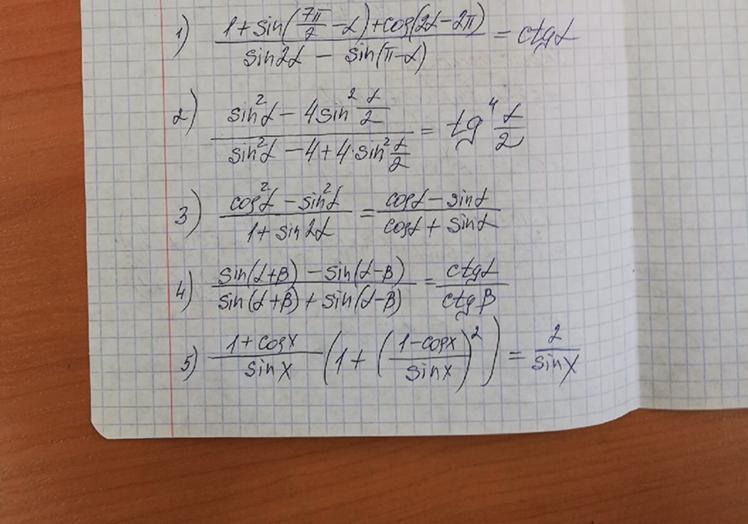 1) (1+sin(7π/2 -α)+cos(2α-2π))/(sin2α - sin(π-α)) = ctgα
2) (sin²α - 4sin² α/2)/(sin²α - 4 + 4·sin² α/2) = tg⁴ α/2
3) (cos²α - sin²α)/(1+ sin2α) = (cosα - sinα)/(cosα + sinα)
4) (sin(α+β) - sin(α-β))/(sin(α+β) + sin(α-β)) = ctgα/ctgβ
5) (1+cosx)/sinx (1+ ((1-cosx)/sinx)²) = 2/sinx